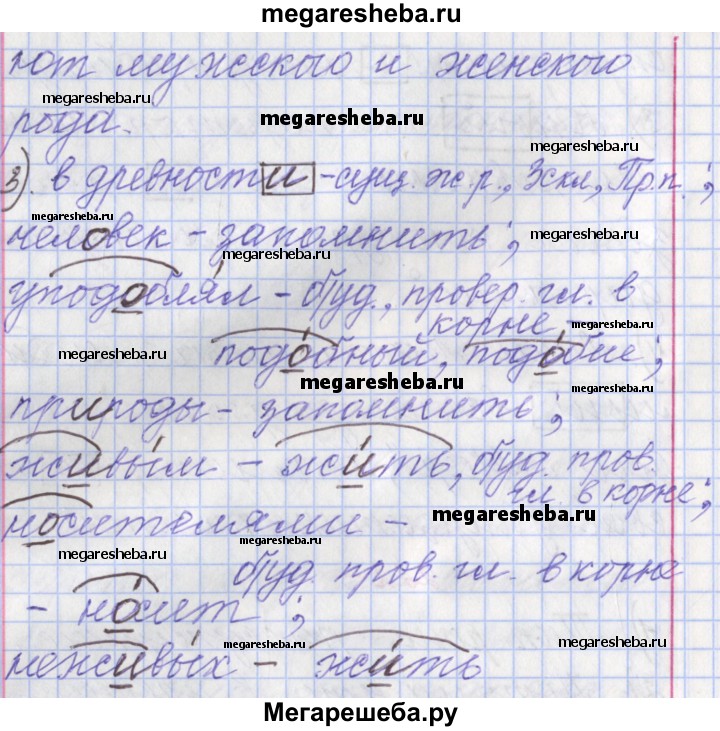 megaresheba.ru
ют мужского и женского
megaresheba.ru
megaresheba.ru
рода.
megaresheba.ru
3). в древности - сущ. ж.р., 3скл, Пр.п.;
megaresheba.ru
человек - запомнить;
megaresheba.ru
megaresheba.ru
уподоблял - буд., провер. гл. в
корне -
megaresheba.ru
megaresheba.ru
подобный, подобие;
megaresheba.ru
природы - запомнить;
живым - жить, буд. пров.
гл. в корне;
носителями -
megaresheba.ru
megaresheba.ru
megaresheba.ru
буд. пров. гл. в корне
- носит;
megaresheba.ru
megaresheba.ru
неживых - жить
Мегарешеба.ру